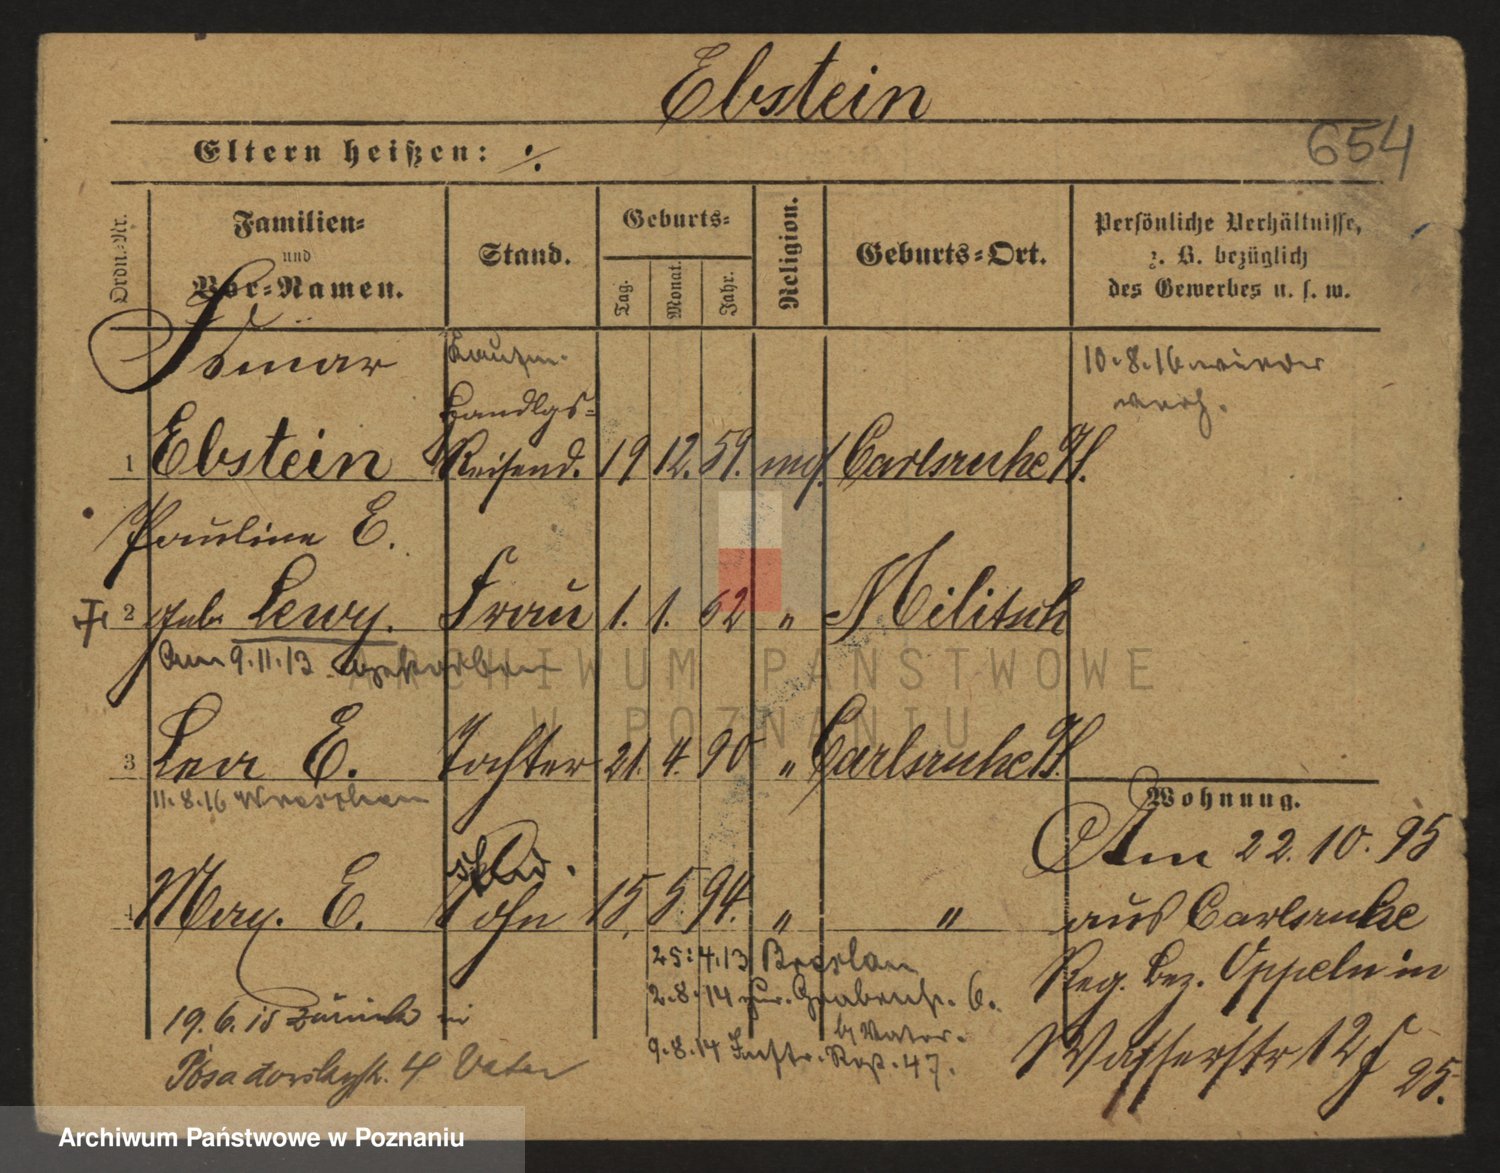 Ebstein
654
Eltern heißen: ./.
Ordn.-Nr.
Familien-
und
Vor-Namen.
Stand.
Geburts-
Tag.
Monat.
Jahr.
Religion.
Geburts-Ort.
Persönliche Verhältnisse,
z. B. bezüglich
des Gewerbes u. s. w.
Ismar
Kaufm.
10.8.16 wieder
Handlgs-
1 Ebstein Reisend. 19 12. 59. mos. Carlsruhe
Pauline E.
2 geb. Lewy. Frau 1. 1. 62 " Militsch
Am 9.11.13 gestorben
3 Lea E. Tochter 21. 4. 90 " Carlsruhe
11.8.16 Wreschen
Wohnung.
Am 22.10.95
4 Max. E. Sohn 15. 5 94. " "
aus Carlsruhe
25.4.13 Breslau
Reg. Bez. Oppeln in
2.8.14 zur. Grabenstr. 6.
b/ Vater.
19.6.15 zurück
9.8.14 Inftr. Rgt. 47.
Wasserstr 12
25.
4 Vater
ARCHIWUM PAŃSTWOWE
W POZNANIU
Archiwum Państwowe w Poznaniu